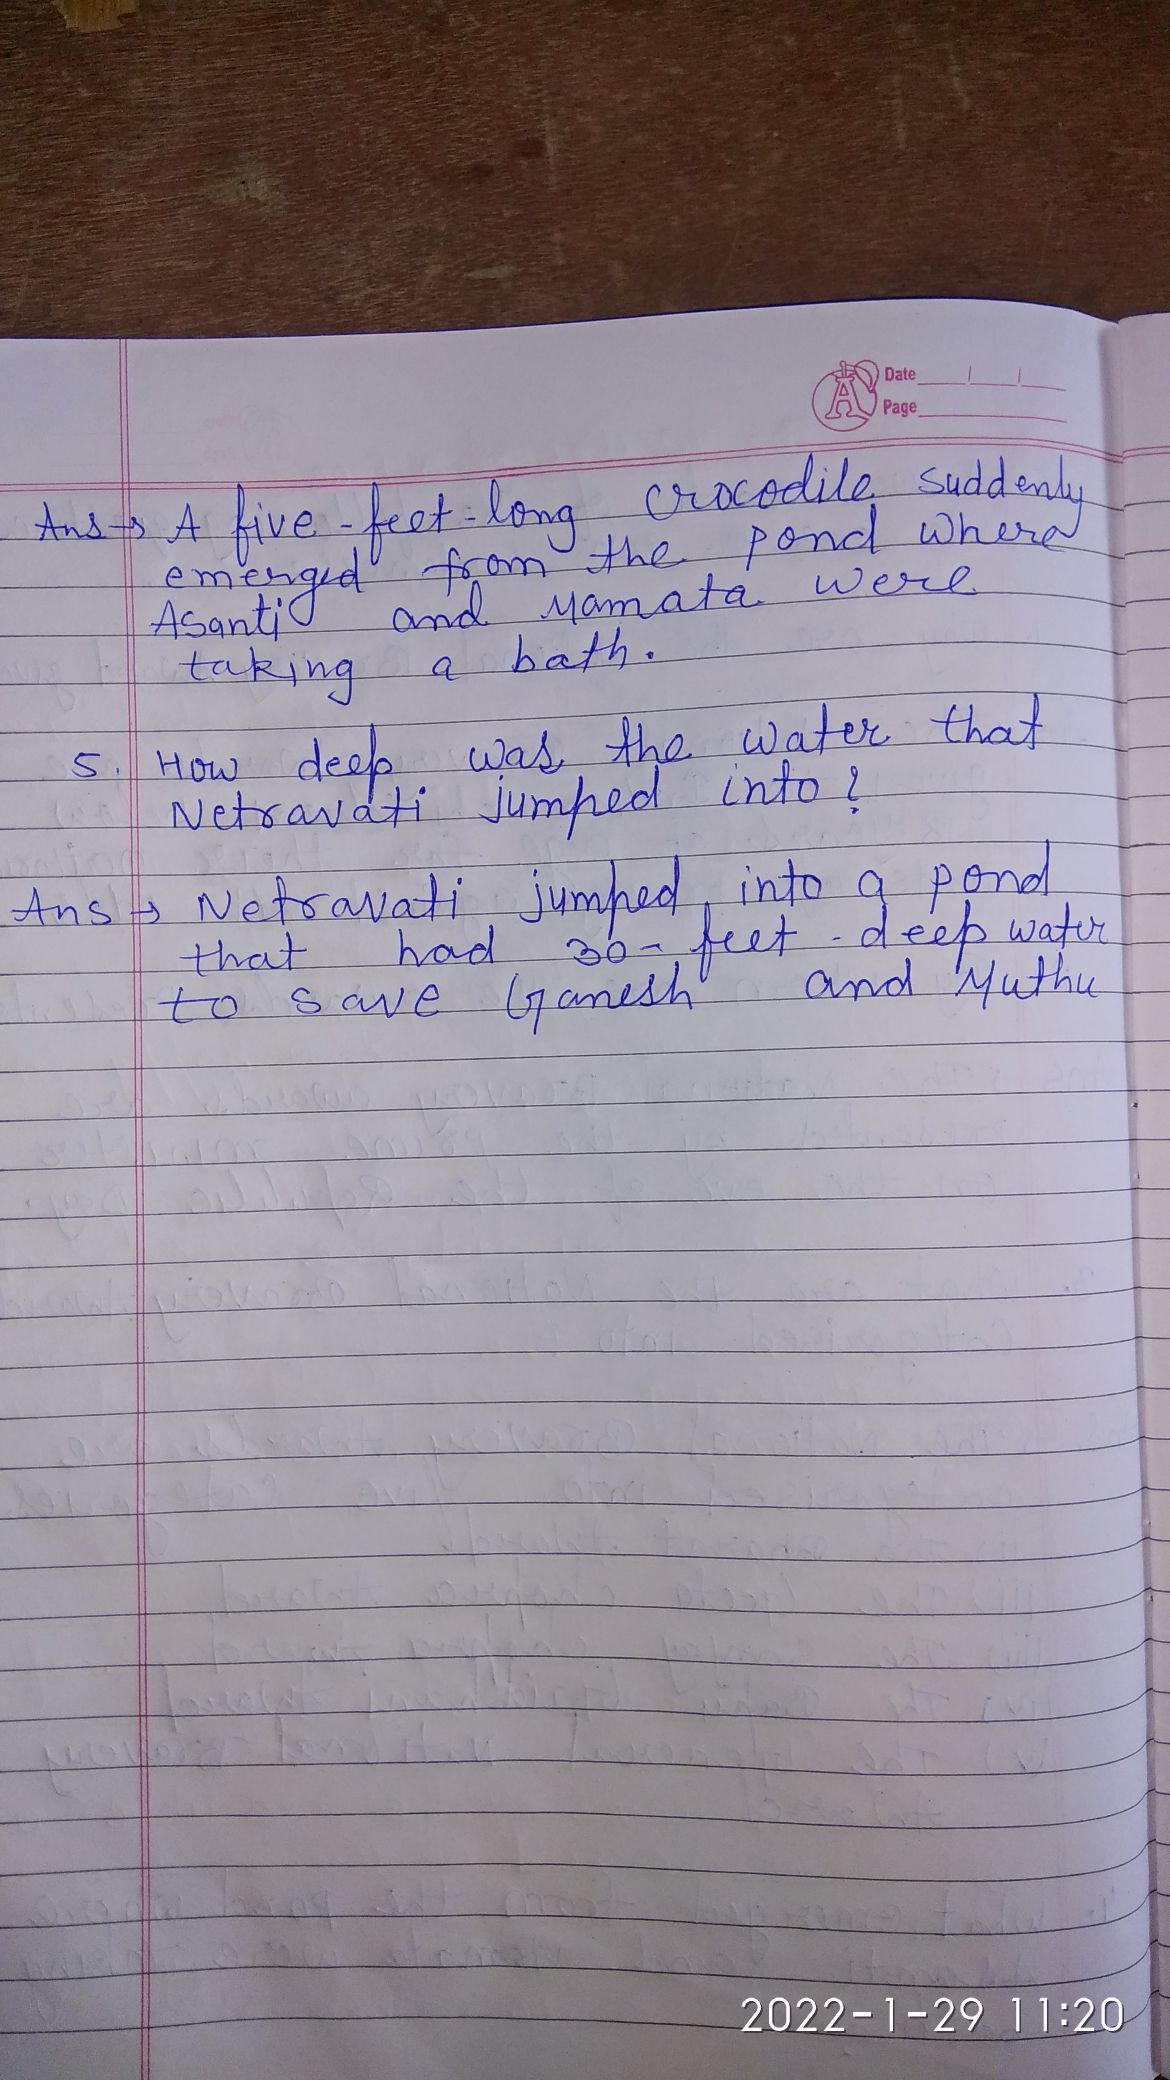 Date
Page
Ans→ A five-feet-long crocodile suddenly
emerged from the pond where
Asanti and Mamata were
taking a bath.
5. How deep was the water that
Netravati jumped into?
Ans→ Netravati jumped into a pond
that had 30-feet-deep water
to save Ganesh and Muthu
2022-1-29 11:20